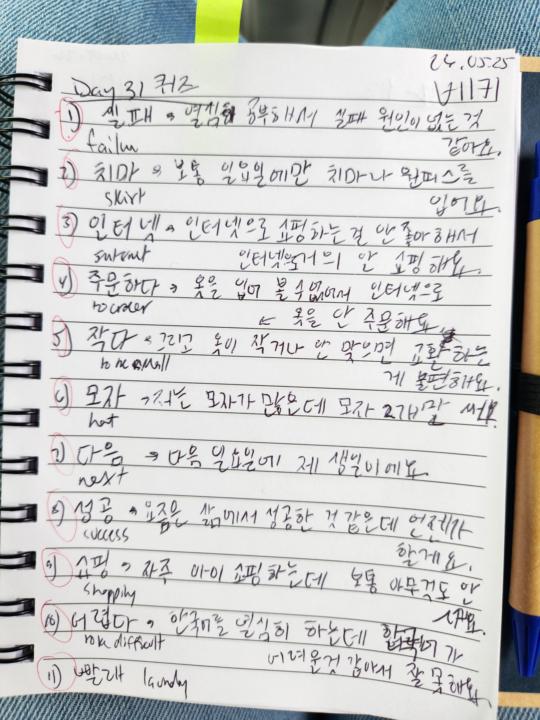 24.05.25
Day 31 퀴즈
1) 실패 → 열심히 공부해서 실패 원인이 없는 것
failure 같아요.
2) 치마 → 보통 일요일에만 치마나 원피스를
skirt 입어요.
3) 인터넷 → 인터넷으로 쇼핑하는 걸 안 좋아해서
인터넷으로 거의 안 쇼핑해요.
4) 주문하다 → 옷을 입어 볼 수 없어서 인터넷으로
to order 옷을 안 주문해요.
5) 작다 → 그리고 옷이 작거나 안 맞으면 교환하는
to be small 게 불편해요.
6) 모자 → 저는 모자가 많은데 모자 2개만 써요.
hat
7) 다음 → 다음 일요일에 제 생일이에요.
next
8) 성공 → 요즘은 삶에서 성공한 것 같은데 언젠가
success 할게요.
9) 쇼핑 → 자주 아이 쇼핑하는데 보통 아무것도 안
shopping 사요.
10) 어렵다 → 한국어를 열심히 하는데 한국어가
to be difficult 어려운것 같아서 잘 못해요.
11) 빨래 laundry